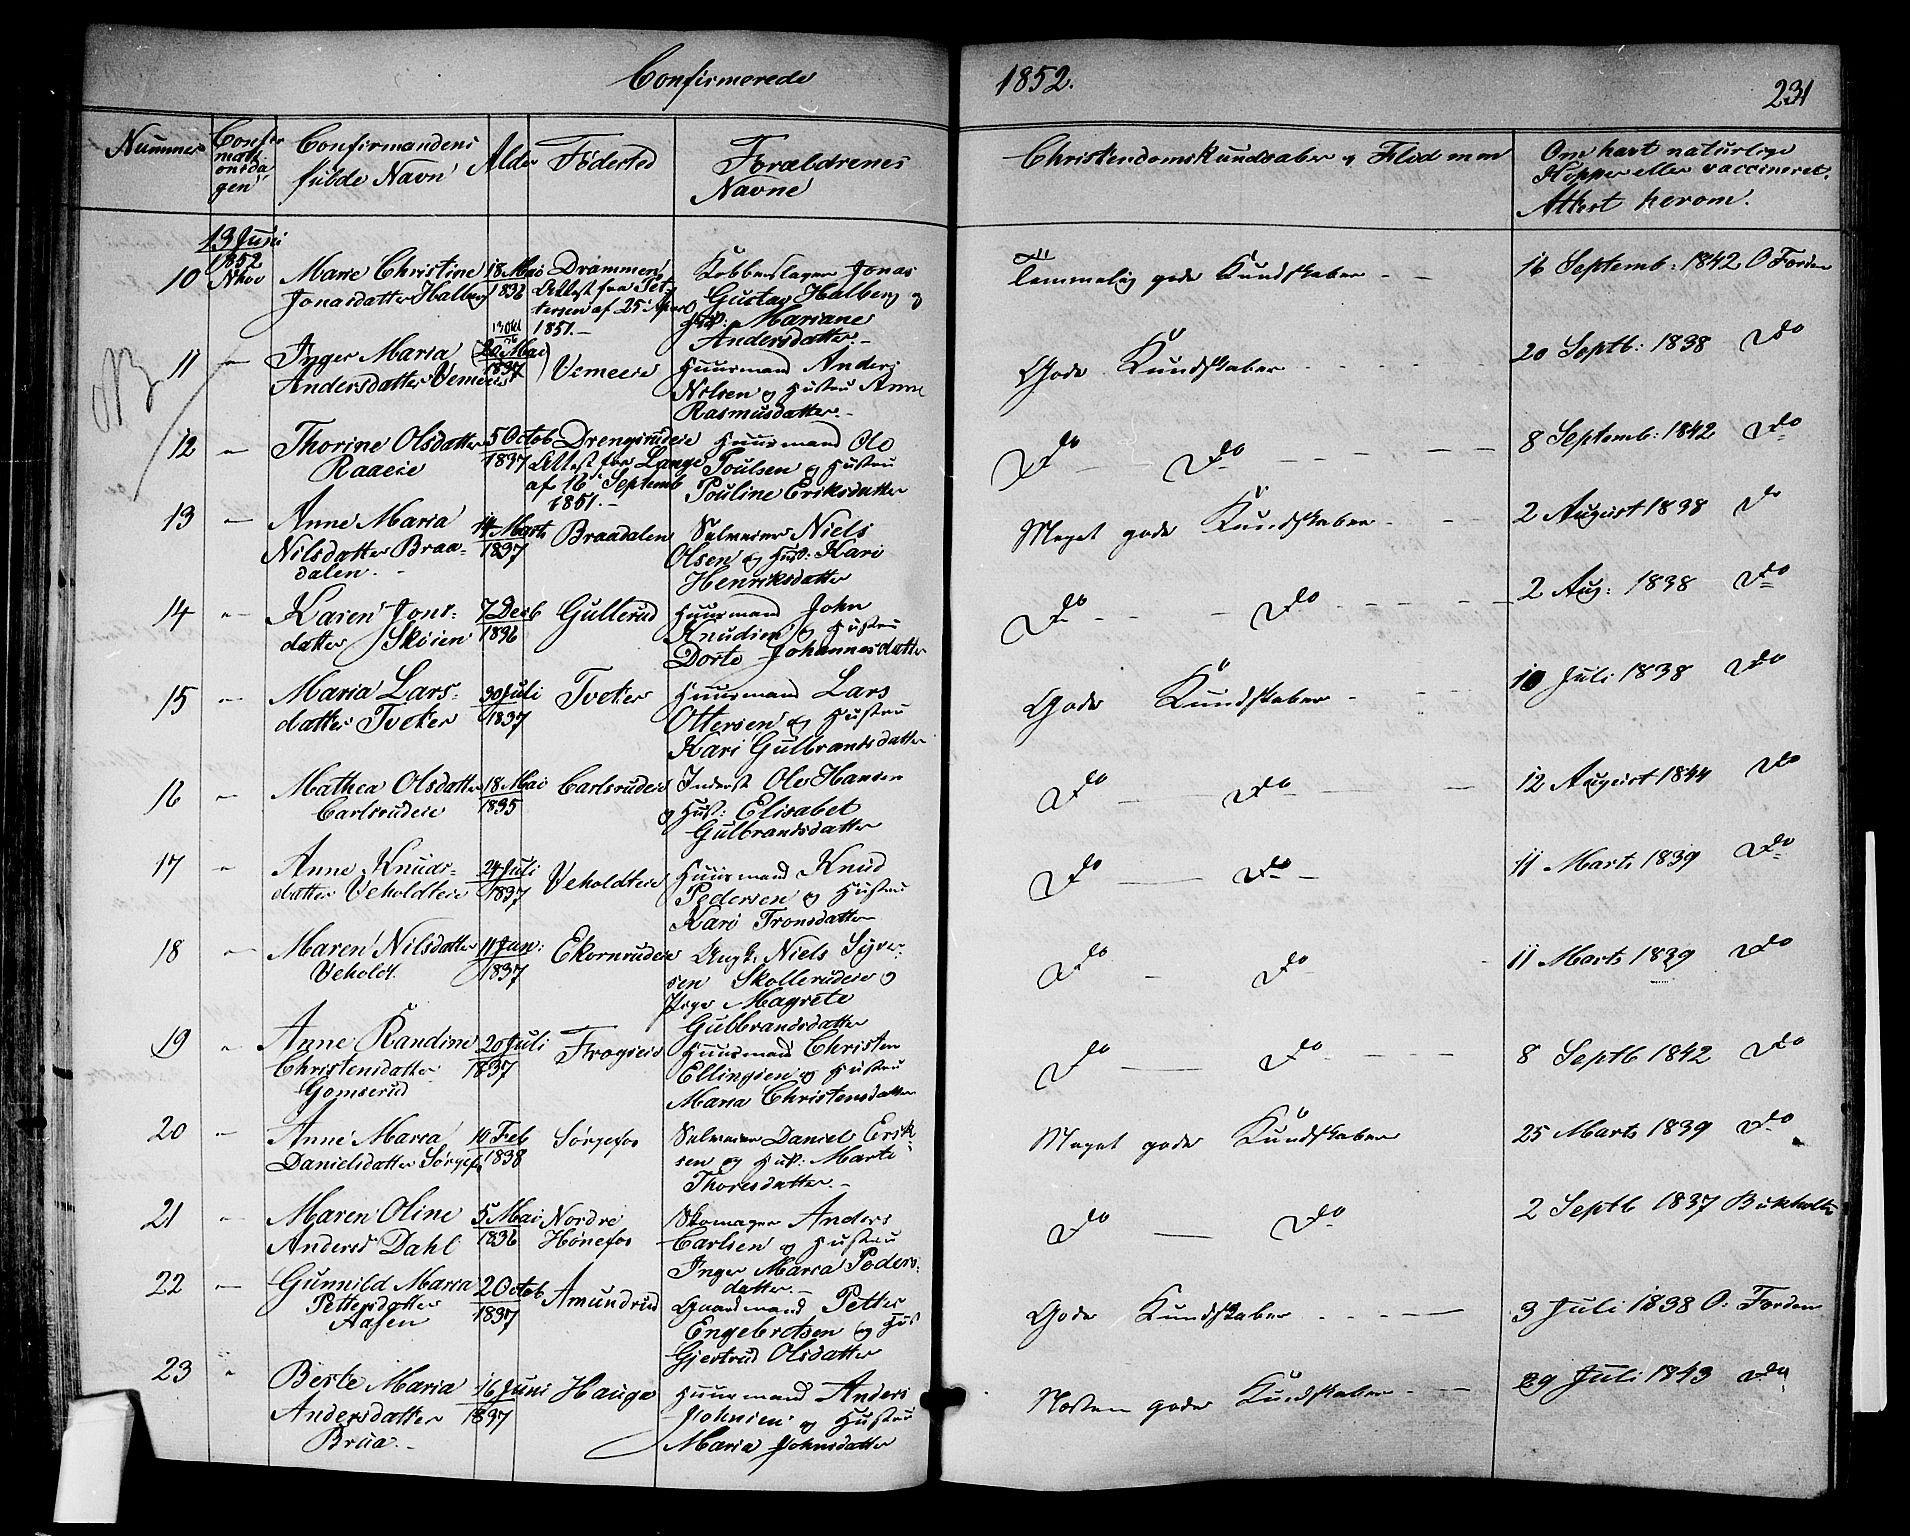 Confirmerede 1852. 231
Nummer Confir Confirmandens Alder Födested Forældrenes Christendomskundsaber og Flid m m Om havt naturlige
mati fulde Navn Navne Kopper eller vaccineret.
onsda Attest herom.
gen
13 Juni
1852
10 Marie Christine 18 Mai Drammen Kobberslager Jonas Temmelig gode Kundskaber - - 16 Septemb: 1842 O Forden
Jonasdatter Halberg 1836 Attest fra Pet- Gustav Halberg og
tersen af 25 April Hust: Mariane
1851.- Andersdatter.-
11 - Inger Maria 20 Mai Vemeeie Huusmand Anders Gode Kundskaber 20 Septb: 1838 Do
Andersdatter Vemeeie 1837 Nilsen og Hustru Anne
Rasmusdatter.-
12 - Thorine Olsdatter 5 Octob Drengsrudeie Huusmand Ole Do - Do 8 Septemb: 1842 Do
Raaeie 1837 Attest fra Lange Poulsen og Hustru
af 16 Septemb Pouline Eriksdatter
1851.-
13 - Anne Maria 14 Marts Braadalen Selveier Niels Meget gode Kundskaber 2 August 1838 Do
Nilsdatter Braa- 1837 Olsen og Hust: Kari
dalen.- Henriksdatter
14 - Karen Jons- 7 Decb Gullerud Huusmand John Do - Do 2 Aug: 1838 Do
datter Skøien 1836 Knudsen og Hustru
Dorte Johannesdatter
15 - Maria Lars- 30 Juli Tveter Huusmand Lars Gode Kundskaber 10 Juli 1838 Do
datter Tveter 1837 Ottersen og Hustru
Kari Gulbrandsdatter
16 - Mathea Olsdatter 18 Mai Carlsrudeie Inderst Ole Hansen Do - Do 12 August 1844 Do
Carlsrudeie 1835 og Hust: Elisabet
Gulbrandsdatter
17 - Anne Knuds- 24 Juli Veholdteie Huusmand Knud Do - Do 11 Marts 1839 Do
datter Veholdteie 1837 Pedersen og Hustru
Kari Tronsdatter
18 - Maren Nilsdatter 11 Jun: Ekornrudeie Ungk. Niels Syver- Do - Do 11 Marts 1839 Do
Veholdt. 1837 sen Skollerudeie og
Pige Magrete
Gulbrandsdatter
19 - Anne Randine 20 Juli Frogseie Huusmand Christen Do - Do 8 Septb 1842 Do
Christensdatter 1837 Ellingsen og Hustru
Gomserud Maria Christensdatter
20 - Anne Maria Feb Sørgefos Selveier Daniel Erik- Meget gode Kundskaber 25 Marts 1839 Do
Danielsdatter Sørgefos 1838 sen og Hust: Marte
Thoresdatter.-
21 - Maren Oline 5 Mai Nordre Skomager Anders Do - Do 2 Septb 1837
Andersd Dahl 1836 Hønefos Carlsen og Hustru
Inger Maria Peders-
datter.-
22 - Gunnild Maria 2 Octob Amundrud Gaardmand Petter Gode Kundskaber 3 Juli 1838 O: Forden
Pettersdatter 1837 Engebretsen og Hus
Aasen Gjertrud Olsdatter
23 - Berte Maria 16 Juni Hauge Huusmand Anders Næsten gode Kundskaber 29 Juli 1843 Do
Andersdatter 1837 Johnsen og Hustru
Brua.- Maria Johnsdatter